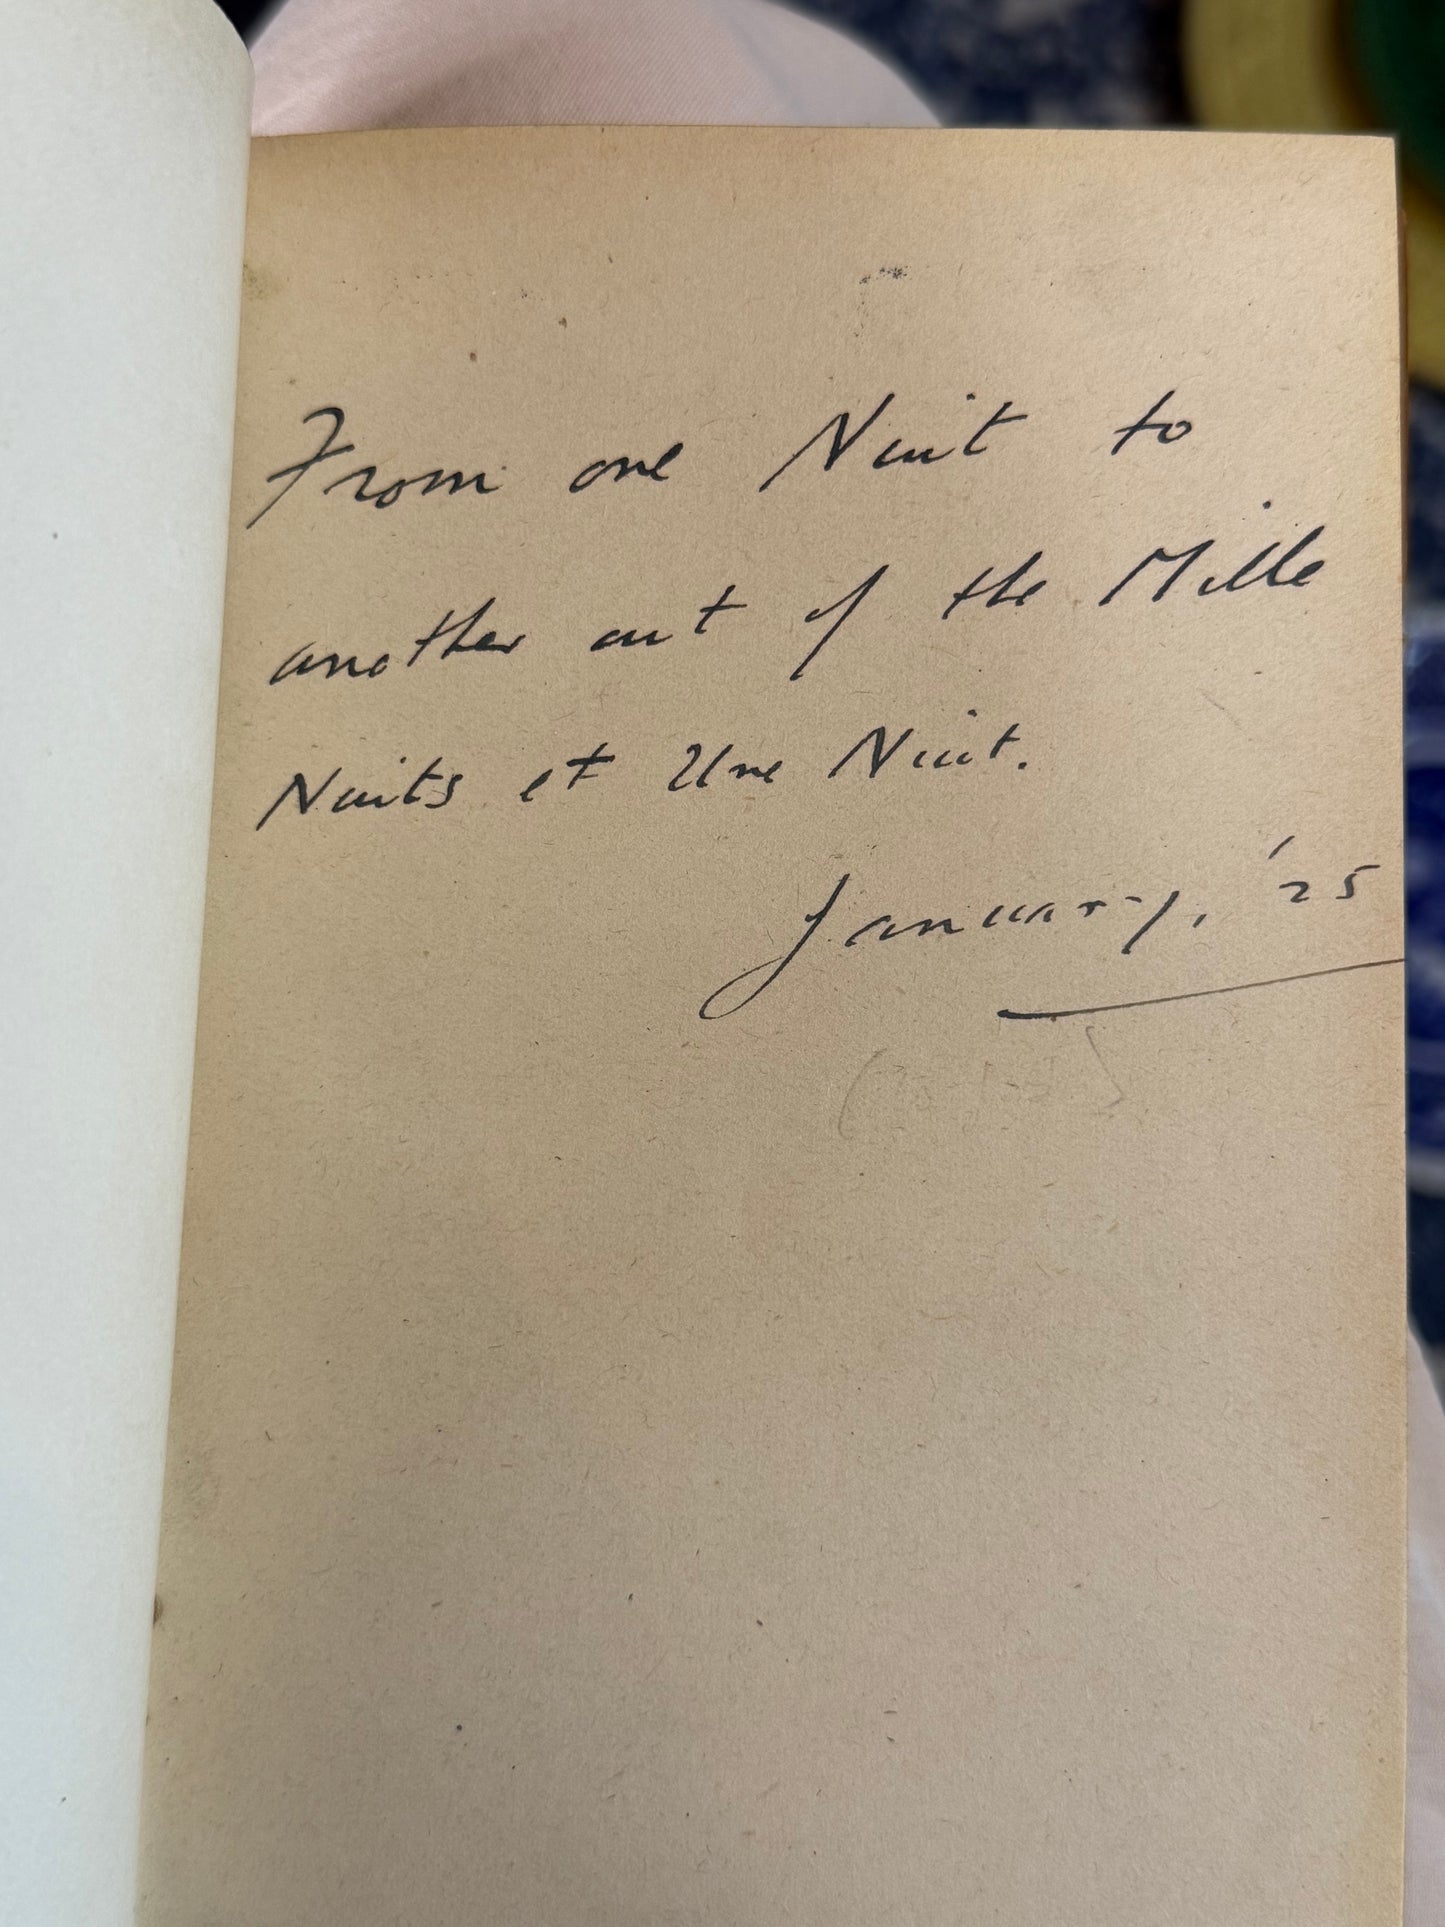 From one Nuit to
another out of the Mille
Nuits et Une Nuit.
January, '25